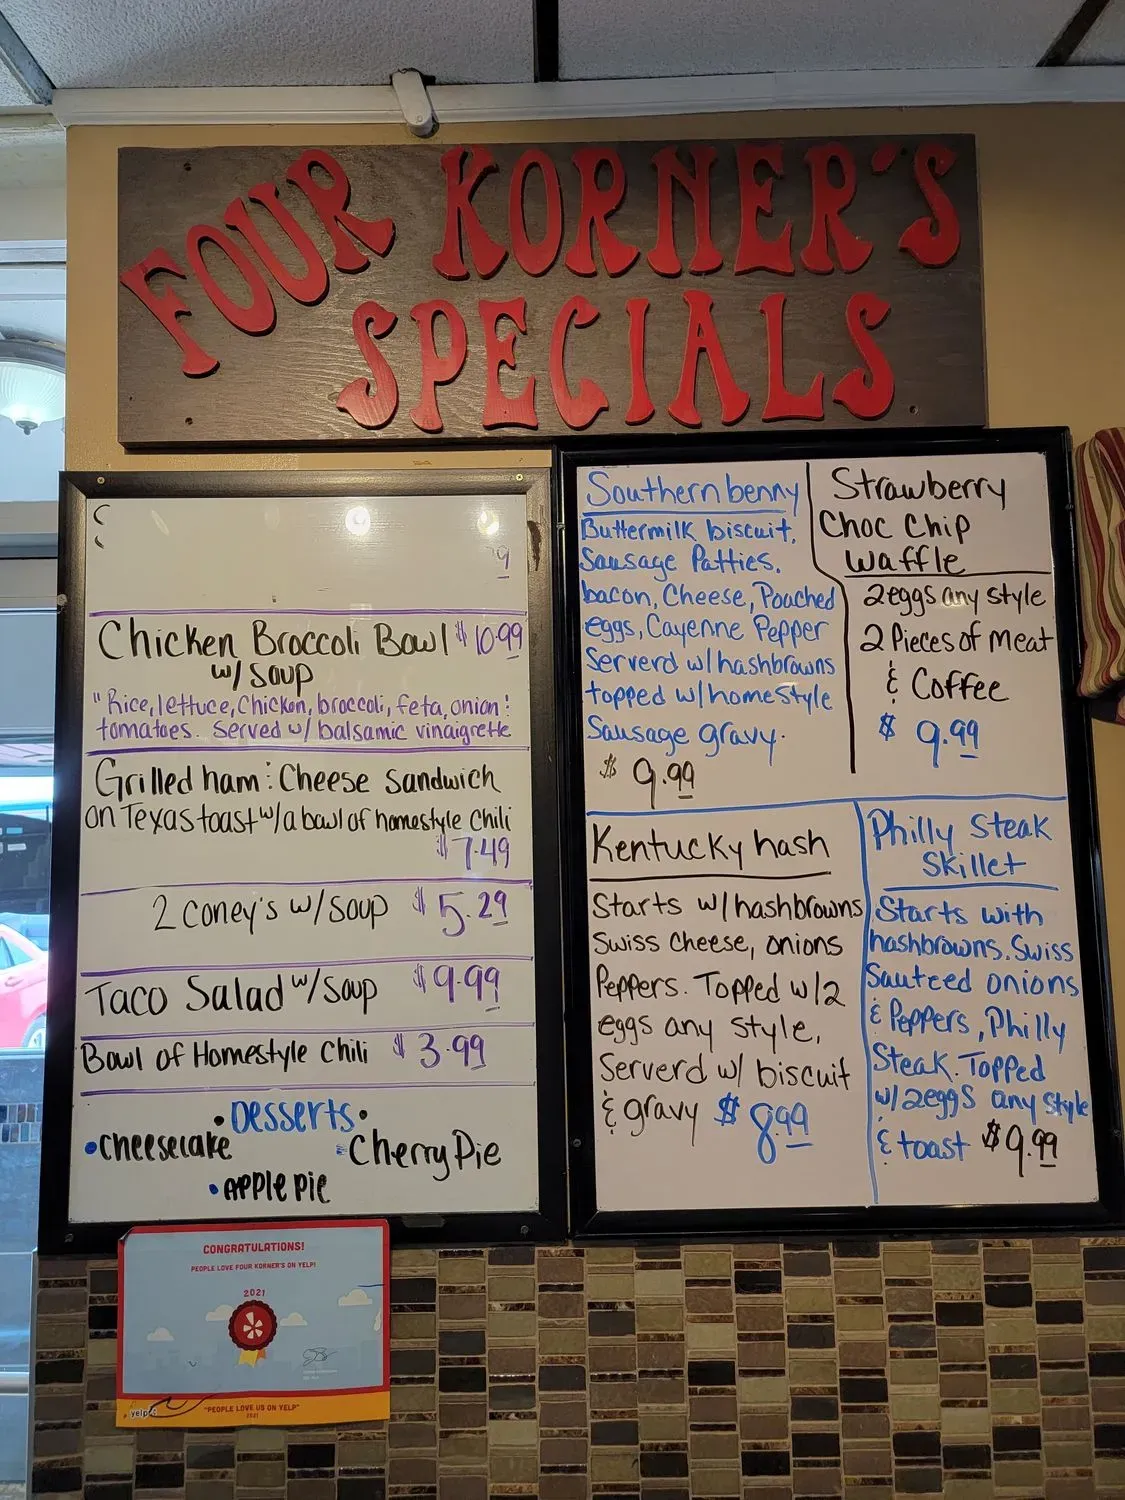 FOUR KORNER'S
SPECIALS
9
Chicken Broccoli Bowl $10.99
w/ Soup
"Rice, lettuce, Chicken, broccoli, feta, onion!
tomatoes. Served w/ balsamic vinaigrette
Grilled ham : Cheese Sandwich
on Texas toast w/a bowl of homestyle Chili
$7.49
2 Coney's w/ Soup $5.29
Taco Salad w/Soup $9.99
Bowl of Homestyle Chili $3.99
•Desserts•
•cheesecake
•Cherry Pie
•Apple pie
Southern benny
Buttermilk biscuit,
Sausage Patties.
bacon, Cheese, Poached
eggs, Cayenne Pepper
Serverd w/ hashbrowns
topped w/ homestyle
Sausage gravy.
$ 9.99
Strawberry
Choc Chip
Waffle
2eggs any style
2 Pieces of Meat
& Coffee
$ 9.99
Kentucky hash
Starts w/hashbrowns
Swiss Cheese, onions
Peppers. Topped w/2
eggs any style,
Serverd w/ biscuit
& gravy $ 8.99
Philly Steak
Skillet
Starts with
hashbrowns. Swiss
Sauteed onions
& Peppers, Philly
Steak. Topped
w/2eggs any style
& toast $9.99
CONGRATULATIONS!
PEOPLE LOVE FOUR KORNER'S ON YELP!
2021
yelp
"PEOPLE LOVE US ON YELP"
2021